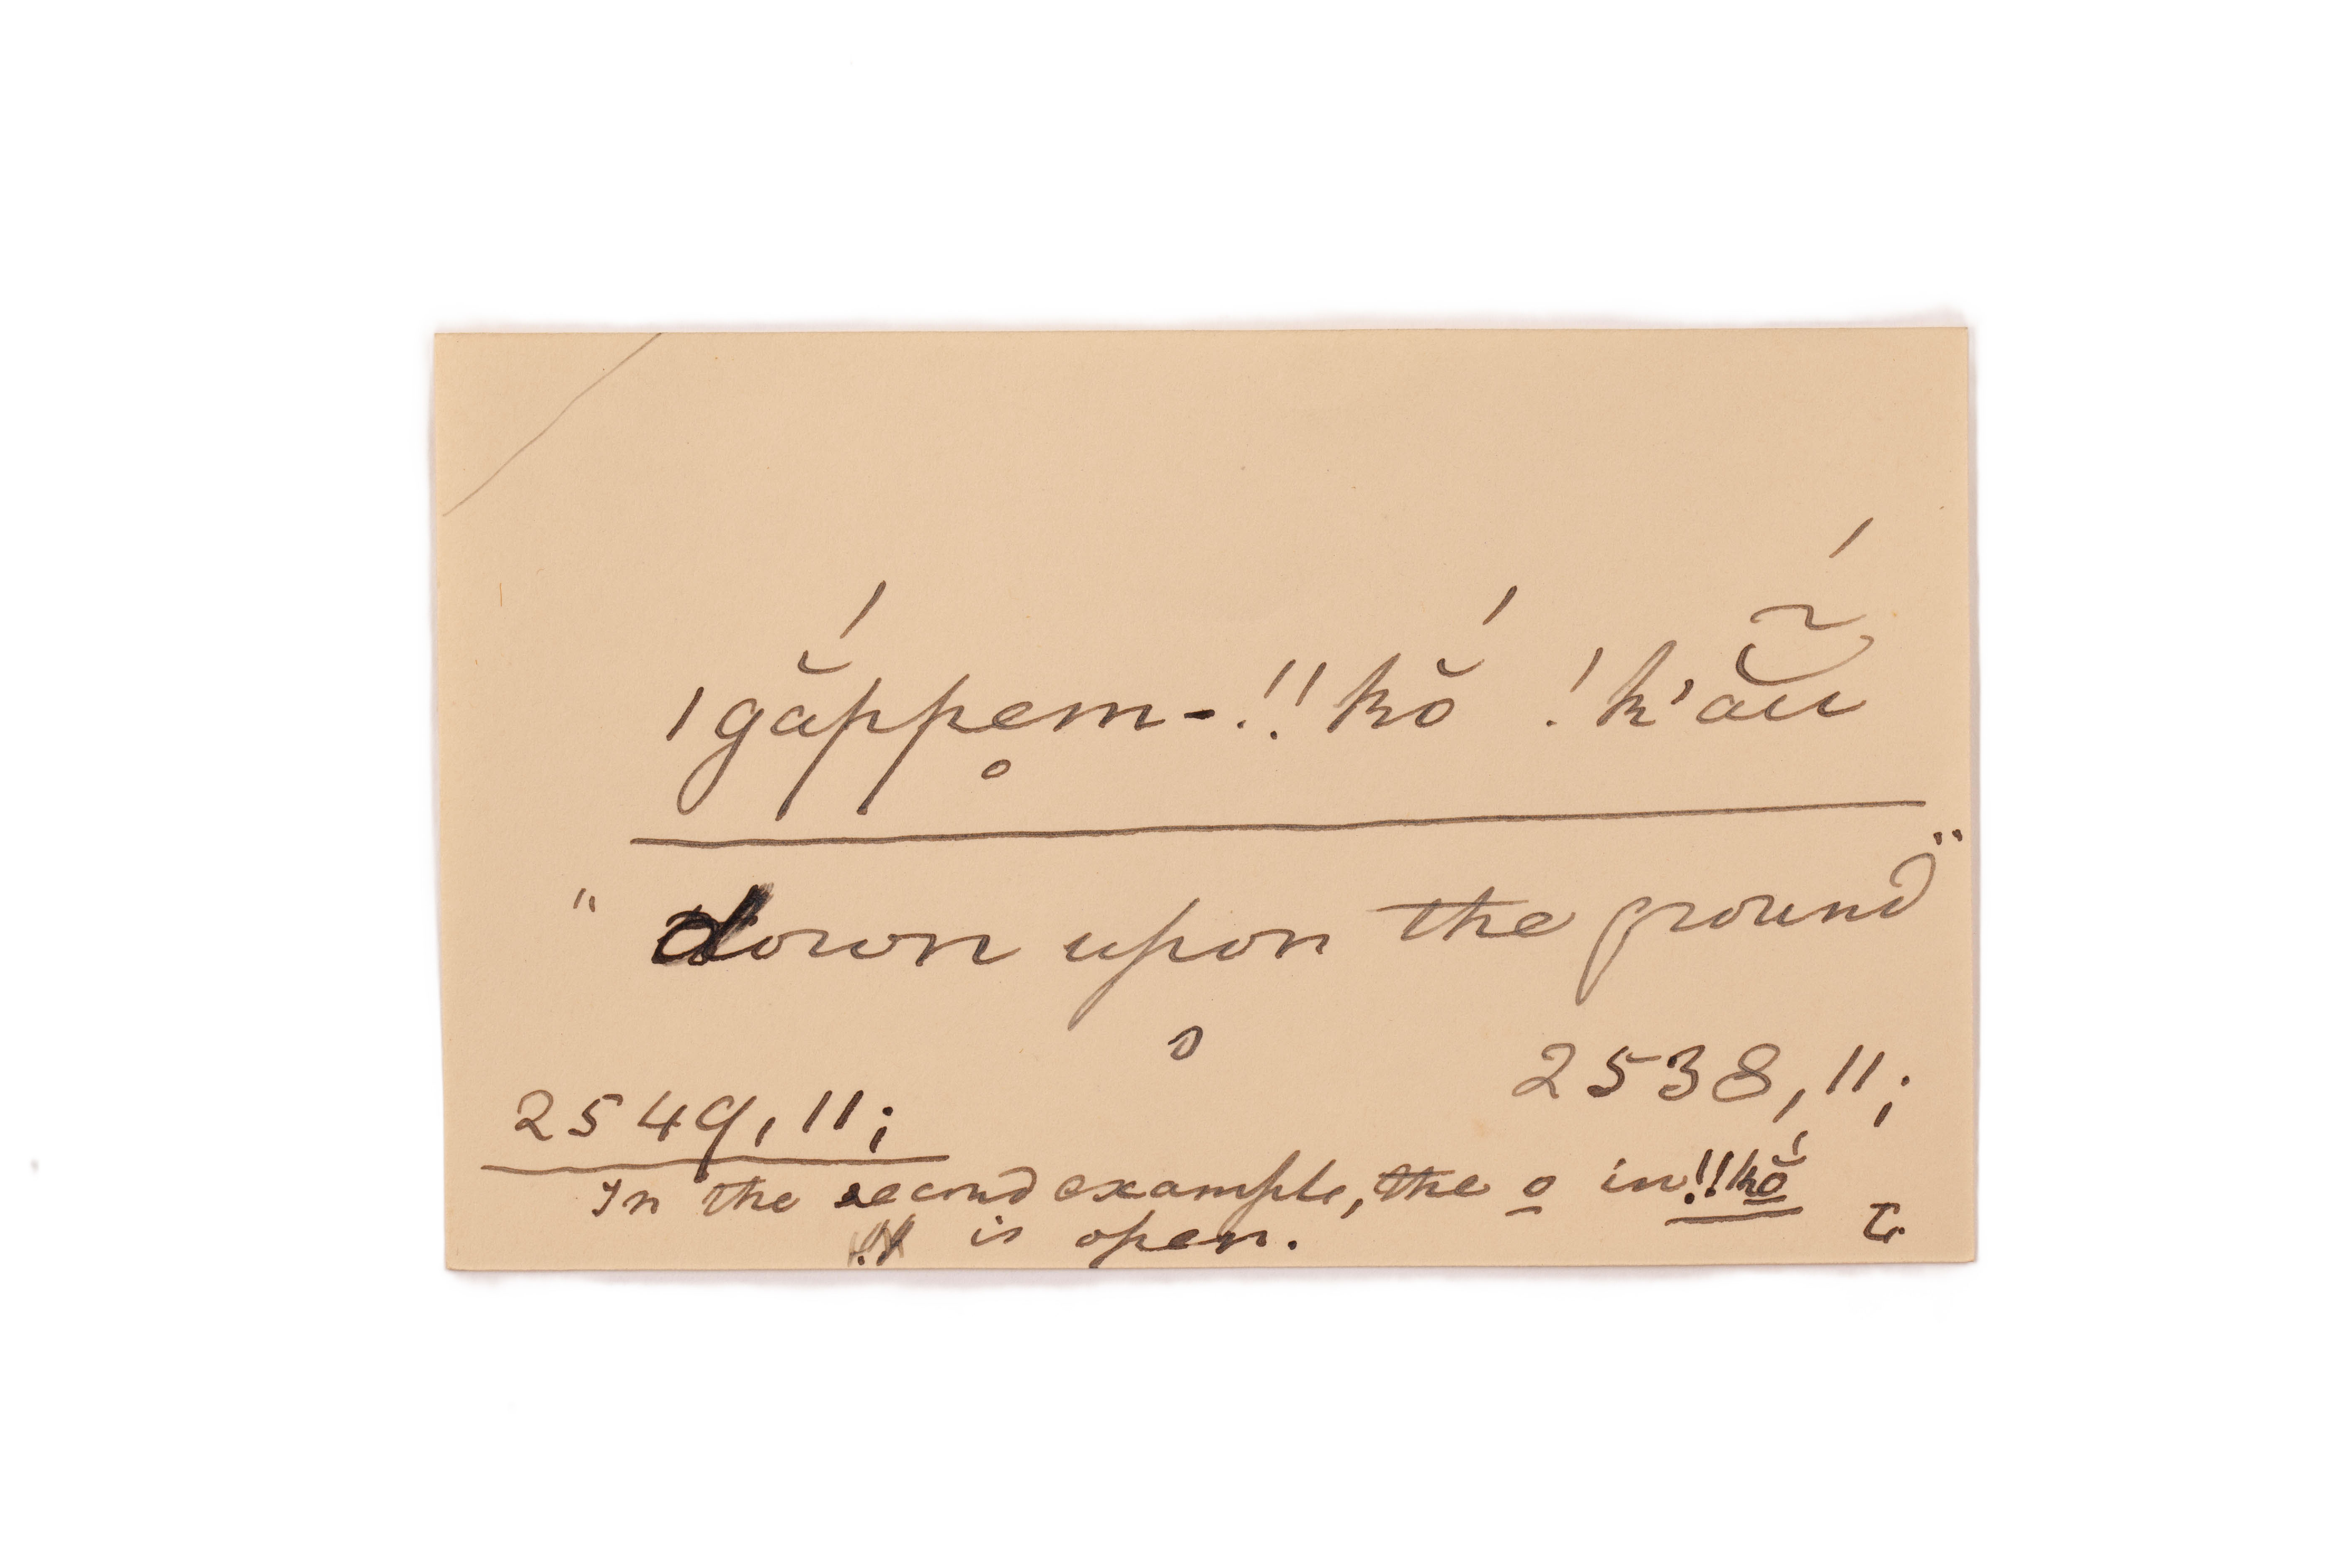 ǀgắppe̥m-ǃǃkŏ́ ǃk'ã̆ṹ
"down upon the ground"
2538, 11;
2549, 11;
In the second example, the o in ǃǃkŏ́
is open.